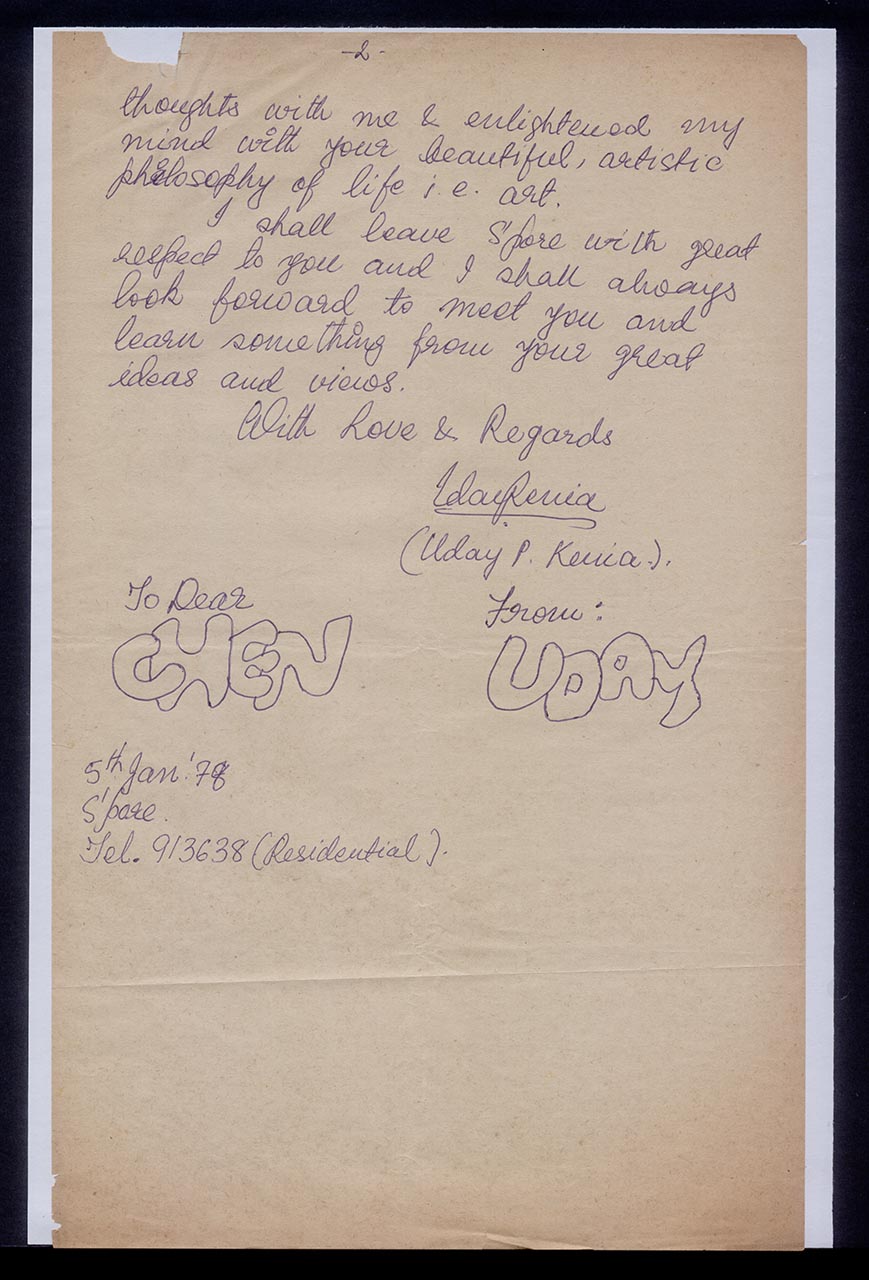 -2-
thoughts with me & enlightened my
mind with your beautiful, artistic
philosophy of life i.e. art.
I shall leave S'pore with great
respect to you and I shall always
look forward to meet you and
learn something from your great
ideas and views.
With Love & Regards
UdayKenia
(Uday P. Kenia.).
To Dear
CHEN
From:
UDAY
5th Jan.'78
S'pore.
Tel. 913638 (Residential).